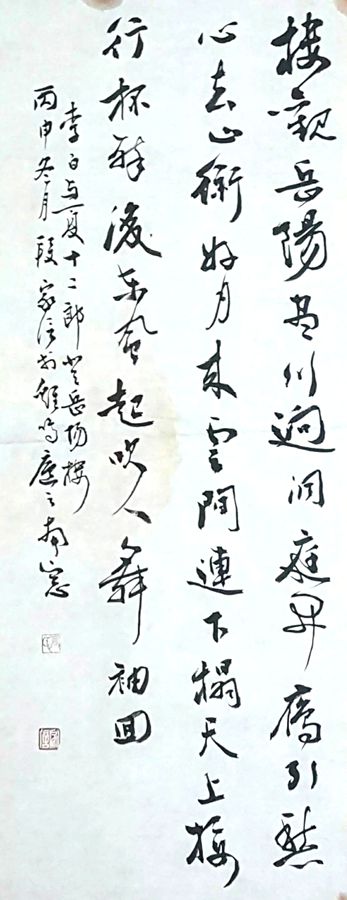 樓觀岳陽盡川迥洞庭開雁引愁
心去山銜好月來雲間連下榻天上接
行杯醉後風起吹人舞袖回
李白与夏十二郎登岳陽樓
丙申冬月段家信书於鳴廬之南窗